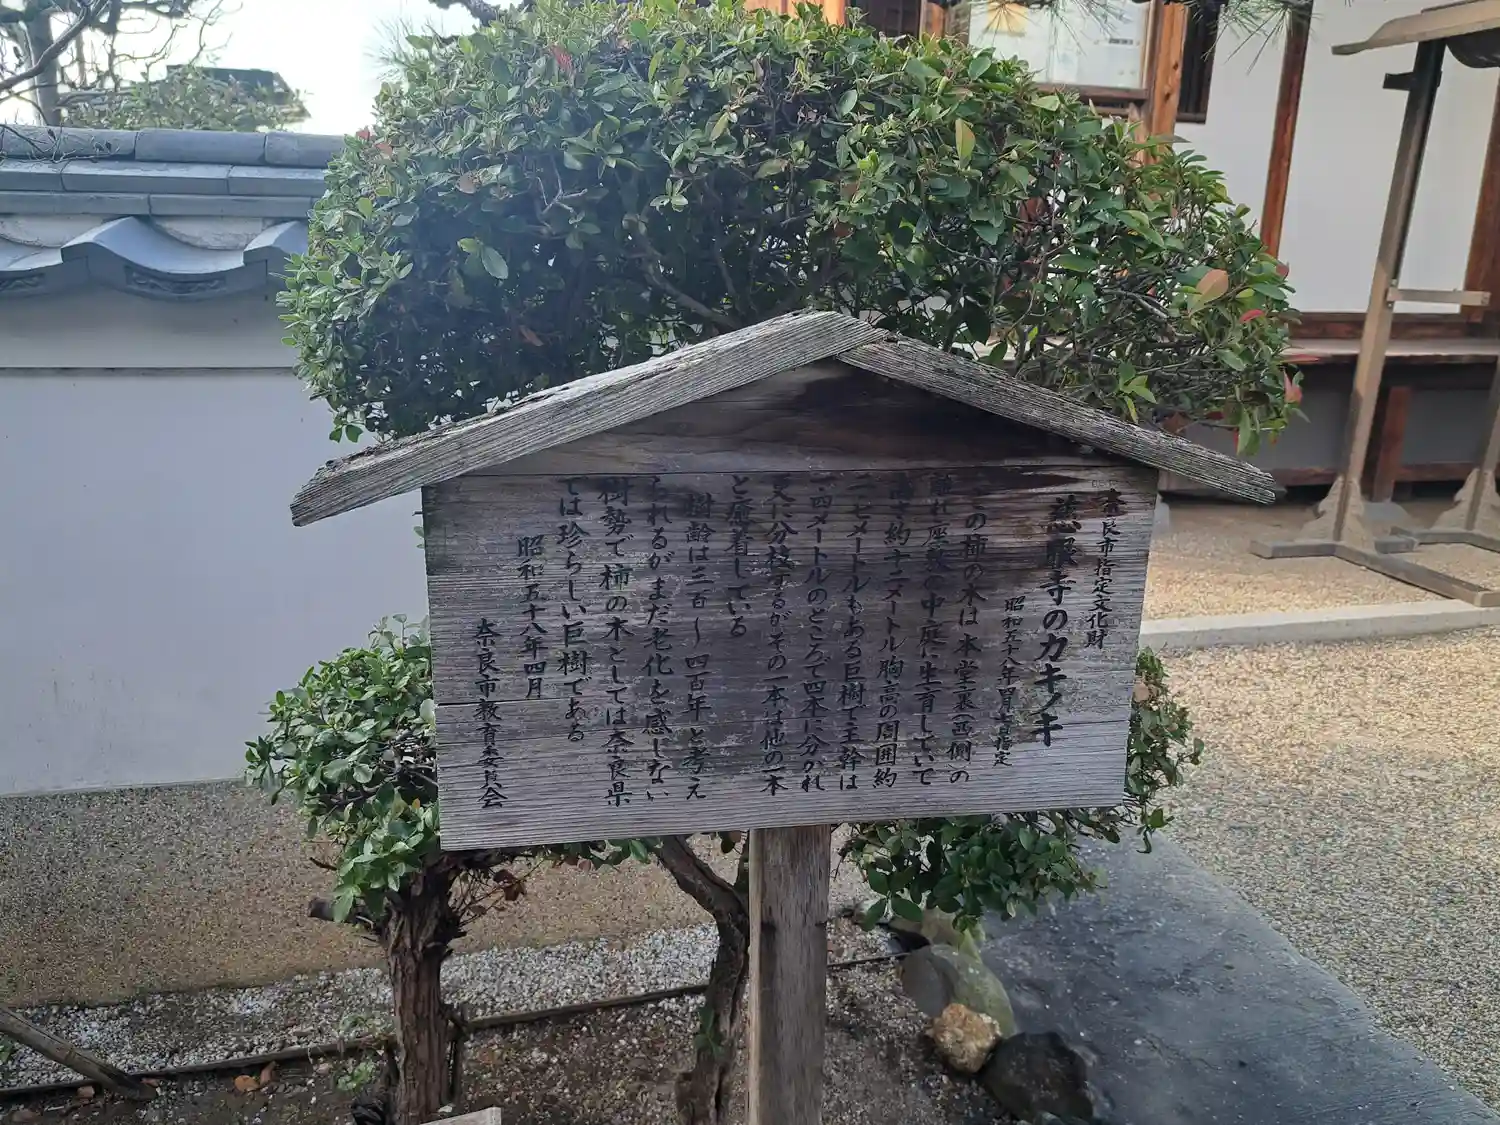 奈良市指定文化財
慈眼寺のカキノキ
昭和五十八年四月七日指定
この柿の木は本堂裏(西側)の
離れ座敷の中庭に生育していて
高さ約十二メートル胸高の周囲約
二・七メートルもある巨樹で主幹は
一・四メートルのところで四本に分かれ
又に分枝するがその一本は他の一本
と癒着している
樹齢は三百〜四百年と考え
られるがまだ老化を感じない
樹勢で柿の木としては奈良県
では珍らしい巨樹である
昭和五十八年四月
奈良市教育委員会